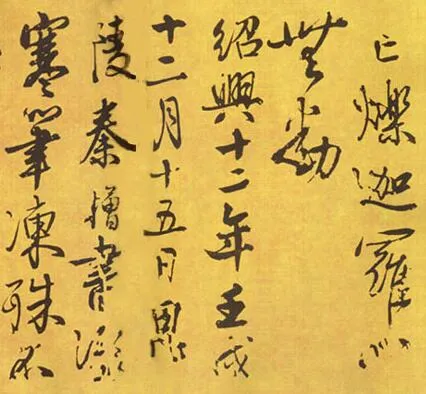 亡爍迦羅心
無動
紹興十二年壬戌
十二月十五日
陵秦檜書
寒筆凍殊不